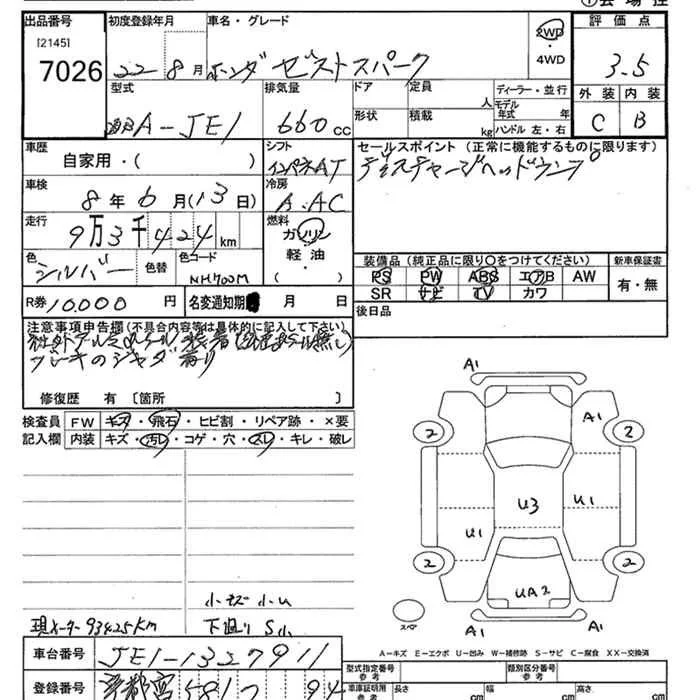 出品番号 初度登録年月 車名・グレード 2WD・4WD 評価点
[2145]
7026
22年8月 ホンダ ゼストスパーク 3.5
型式 排気量 ドア 定員 人 ディーラー・並行 外装 内装
A-JE1 660cc 形状 積載 kg モデル年式 年 ハンドル 左・右 C B
車歴 自家用・( ) シフト インパネAT セールスポイント(正常に機能するものに限ります)
ディスチャージヘッドランプ
車検 8年6月(13日) 冷房 A.AC
走行 9万3千424km 燃料 ガソリン 軽油・( )
色 シルバー 色替 色コード NH700M
装備品(純正品に限り○をつけてください) 新車保証書
PS PW ABS エアB AW 有・無
SR ナビ TV カワ
R券 10,000円 名変通知期 月 日 後日品
注意事項申告欄(不具合内容等は具体的に記入して下さい)
社外アルミホイール装着
ブレーキのジャダ有り
修復歴 有 [箇所 ]
検査員記入欄 FW キズ・飛石・ヒビ割・リペア跡・×要
内装 キズ・汚レ・コゲ・穴・スレ・キレ・破レ
A1
A1
2 2
U3 U1
U1
2 2
UA2
スペア A1
小キズ 小U
現メーター93425Km 下廻り S小
A-キズ E-エクボ U-凹み W-補修跡 S-サビ C-腐食 XX-交換済
車台番号 JE1-1327911
型式指定番号 参考 類別区分番号 参考
登録番号 宇都宮 581
車庫証明用 参考 長さ cm 幅 cm 高さ cm